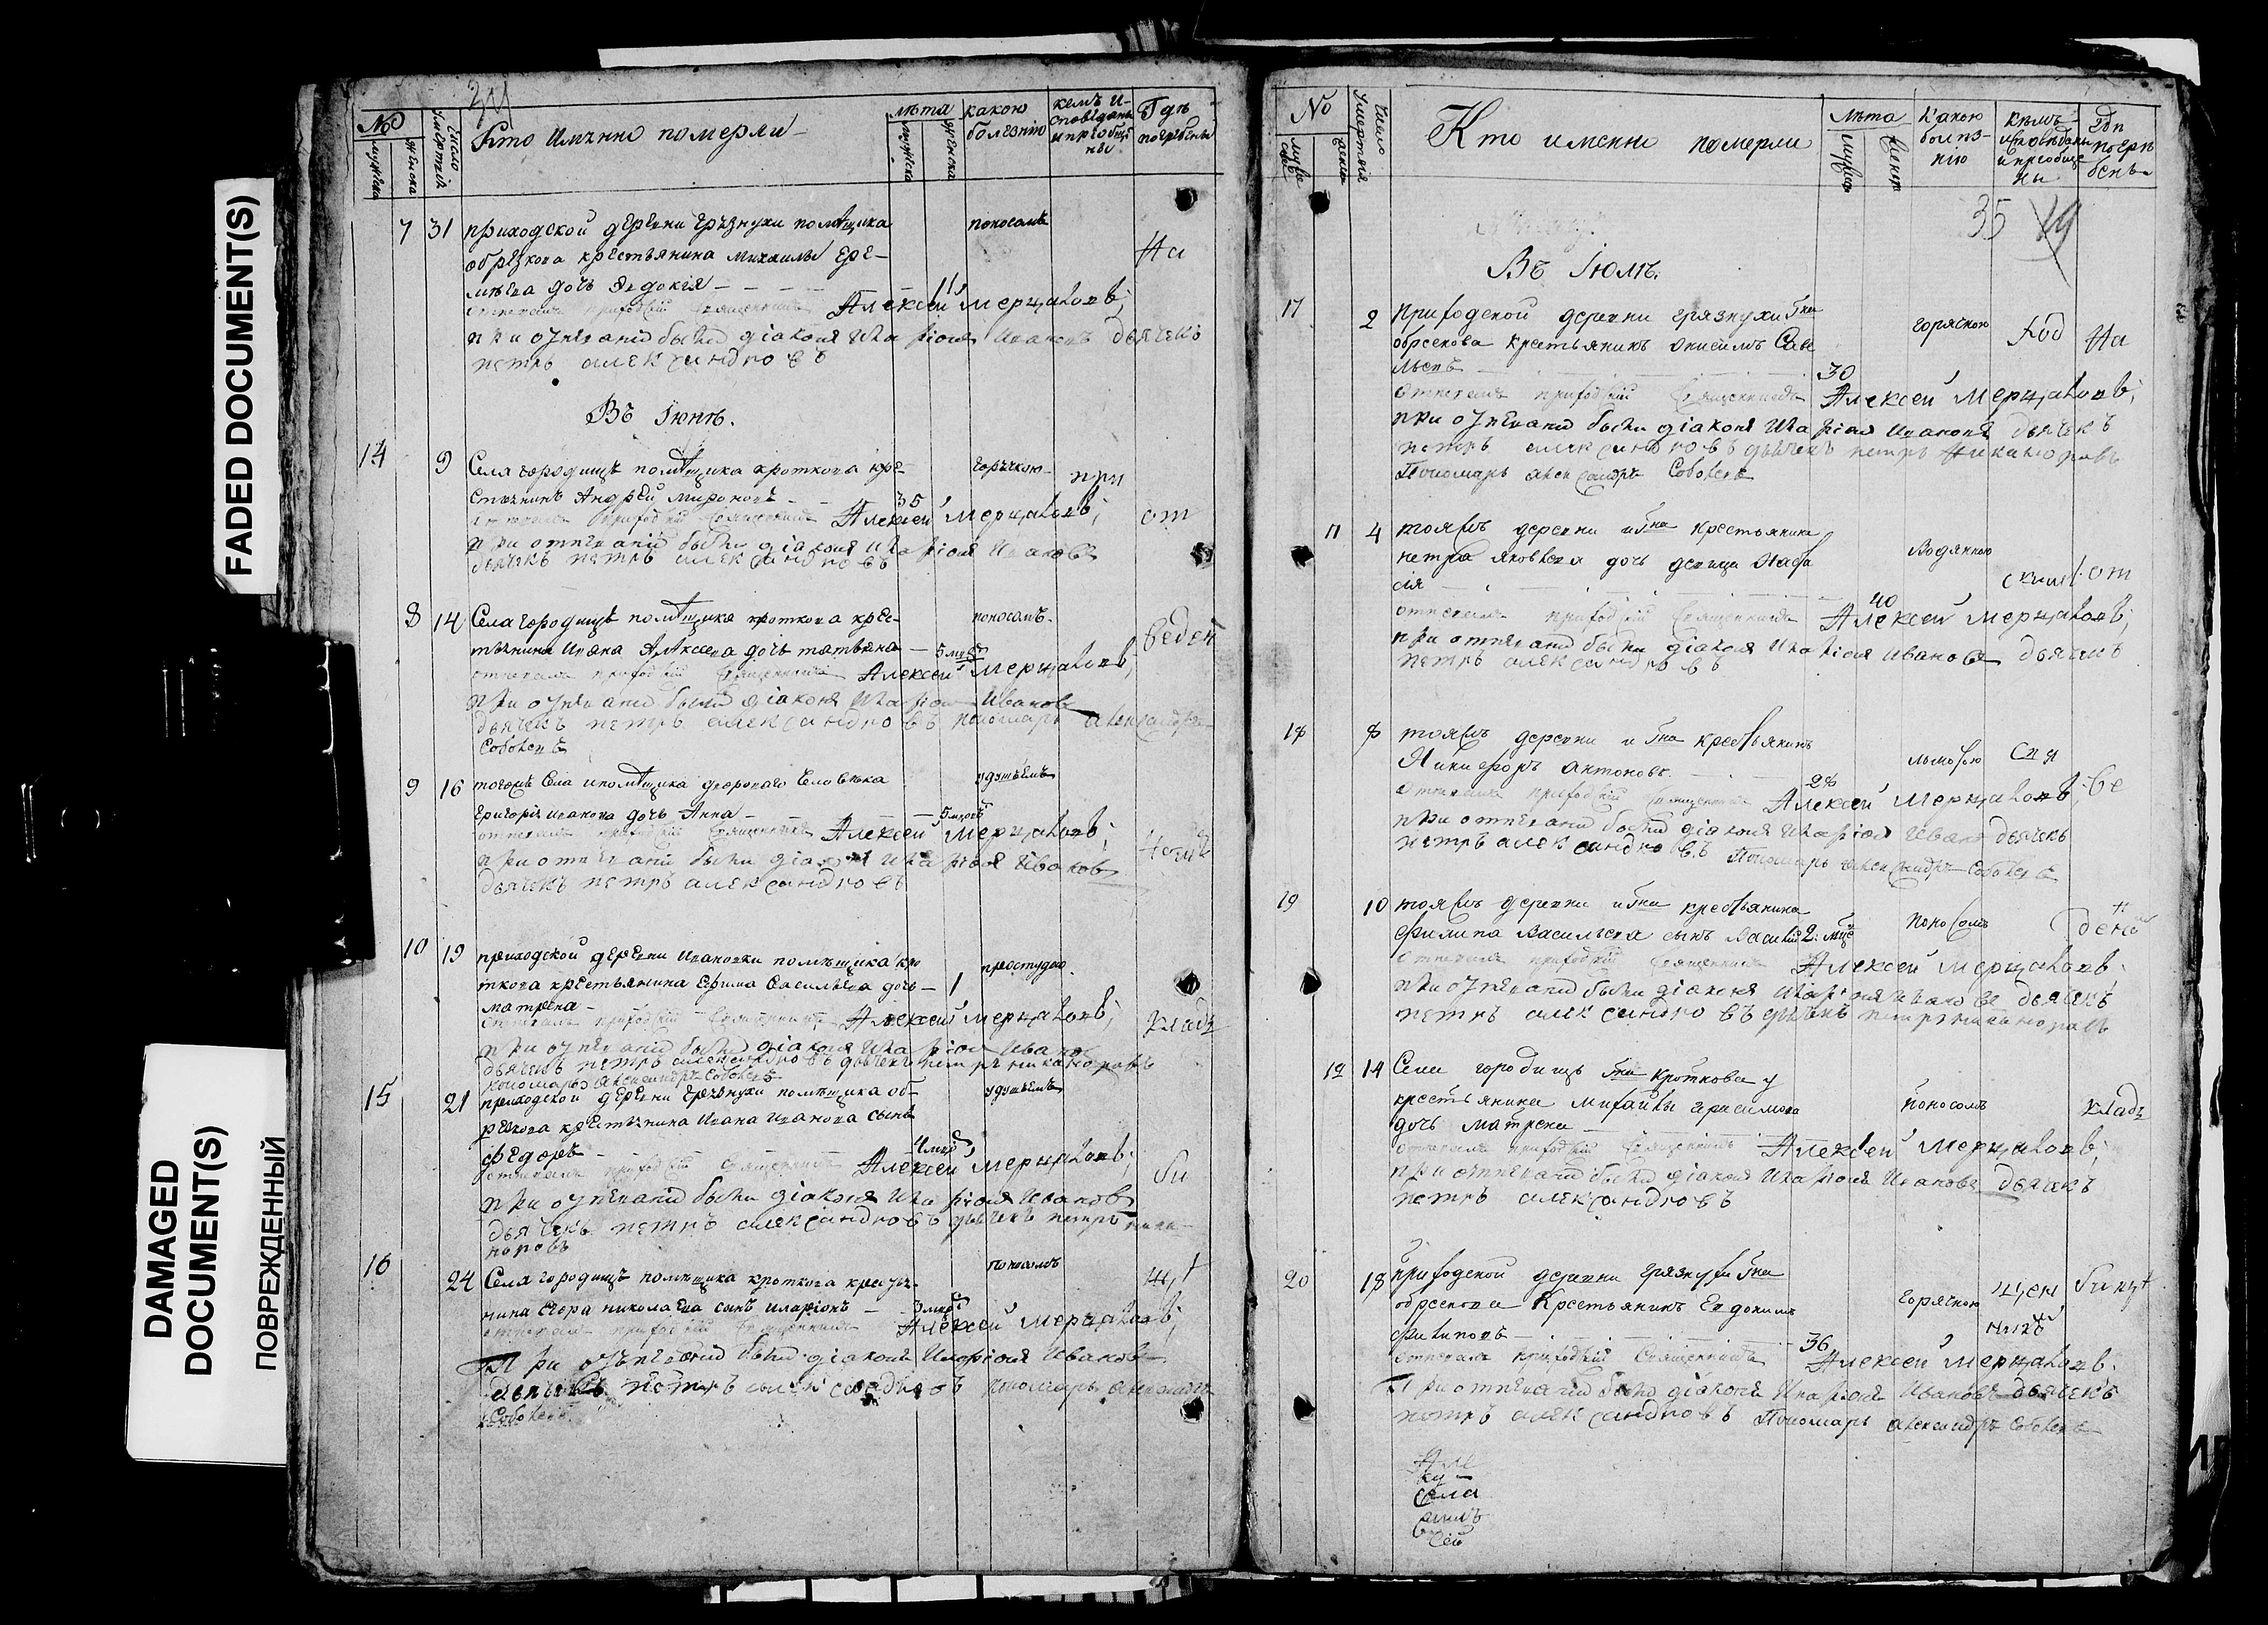 FADED DOCUMENT(S)
DAMAGED
DOCUMENT(S)
ПОВРЕЖДЕННЫЙ
№
мужска
женска
число смертей
Кто имянно померли
лѣта
мужска
женска
какою болезнію
кемъ исповѣданы и пріобщены
Гдѣ погребены
7 31 приходской деревни грязнухи помѣщика поносомъ
обрѣзкова крестьянина михаилы Ере- На
мѣева дочь Евдокія 11
отпевалъ приходскій священникъ Алексей Мерцаловъ;
при отпеваніи были діаконъ Иларіонъ Ивановъ дьячекъ
петръ александровъ
Въ Іюнѣ.
14 9 Села городищъ помѣщика кроткова кре- горячкою при
стьянинъ Андрей мироновъ 35
отпевалъ приходскій священникъ Алексей Мерцаловъ; от
при отпеваніи были діаконъ Иларіонъ Ивановъ
дьячекъ петръ александровъ
8 14 Села городищъ помѣщика кроткова крес- поносомъ.
тьянина Ивана Алексеева дочь татьяна 5 веден
отпевалъ приходскій священникъ Алексей Мерцаловъ;
при отпеваніи были діаконъ Иларіонъ Ивановъ
дьячекъ петръ александровъ пономарь александръ
Соболевъ
9 16 тогожъ Села и помѣщика двороваго человѣка удушьемъ
григорія иванова дочь Анна 5
отпевалъ приходскій священникъ Алексей Мерцаловъ;
при отпеваніи были діаконъ Иларіонъ Ивановъ
дьячекъ петръ александровъ
10 19 приходской деревни Ивановки помѣщика кро
ткова крестьянина Ефима Васильева дочь 1 простудою.
матрена
отпевалъ приходскій священникъ Алексей Мерцаловъ; кладъ
при отпеваніи были діаконъ Иларіонъ Ивановъ
дьячекъ петръ александровъ дьячекъ петръ никаноровъ
пономарь александръ Соболевъ
15 21 приходской деревни грязнухи помѣщика об- удушьемъ
рѣзкова крестьянина Ивана Иванова сынъ
Федоръ 4
отпевалъ приходскій священникъ Алексей Мерцаловъ; би
при отпеваніи были діаконъ Иларіонъ Ивановъ
дьячекъ петръ александровъ дьячекъ петръ ника-
норовъ
16 24 Села городищъ помѣщика кроткова кресть- поносомъ
янина егора николаева сынъ иларіонъ 3
отпевалъ приходскій священникъ Алексей Мерцаловъ;
При отпеваніи были діаконъ Иларіонъ Ивановъ
дьячекъ петръ александровъ пономарь александръ
Соболевъ
№
Число умертвія
Кто именно померли
лѣта
Какою болѣзнію
Кѣмъ исповѣданы и пріобщены
Гдѣ погребенъ
35
Въ Іюлѣ.
17 2 приходской деревни грязнухи Гна горячкою
обрескова Крестьянинъ Онисимъ Саве На
льевъ 30
отпевалъ приходскій священникъ Алексей Мерцаловъ;
при отпеваніи были діаконъ Иларіонъ Ивановъ дьячекъ
петръ александровъ дьячекъ петръ никаноровъ
Пономарь александръ Соболевъ
11 4 тояжъ деревни и Гна Крестьянина водяною
петра яковлева дочь девица Наста
сія 40 от
отпевалъ приходскій священникъ Алексей Мерцаловъ;
при отпеваніи были діаконъ Иларіонъ Ивановъ дьячекъ
петръ александровъ
18 8 тояжъ деревни и Гна крестьянинъ
Никифоръ антоновъ. 28 ве
отпевалъ приходскій священникъ Алексей Мерцаловъ;
при отпеваніи были діаконъ Иларіонъ Иванов дьячекъ
петръ александровъ Пономарь александръ Соболевъ
19 10 тояжъ деревни и Гна крестьянина поносомъ
филипа Васильева сынъ Василій 2 ден
отпевалъ приходскій священникъ Алексей Мерцаловъ;
при отпеваніи были діаконъ Иларіонъ Ивановъ дьячекъ
петръ александровъ дьячекъ петръ никаноровъ
12 14 Села городищъ Гна Кроткова у
крестьянина михайлы герасимова поносомъ кладъ
дочь матрена
отпевалъ приходскій священникъ Алексей Мерцаловъ;
при отпеваніи были діаконъ Иларіонъ Ивановъ дьячекъ
петръ александровъ
20 18 приходской деревни грязнухи Гна
обрескова Крестьянинъ Евдокимъ горячкою
филиповъ 36
отпевалъ приходскій священникъ Алексей Мерцаловъ;
При отпеваніи были діаконъ Иларіонъ Ивановъ дьячекъ
петръ александровъ Пономарь александръ Соболевъ
села